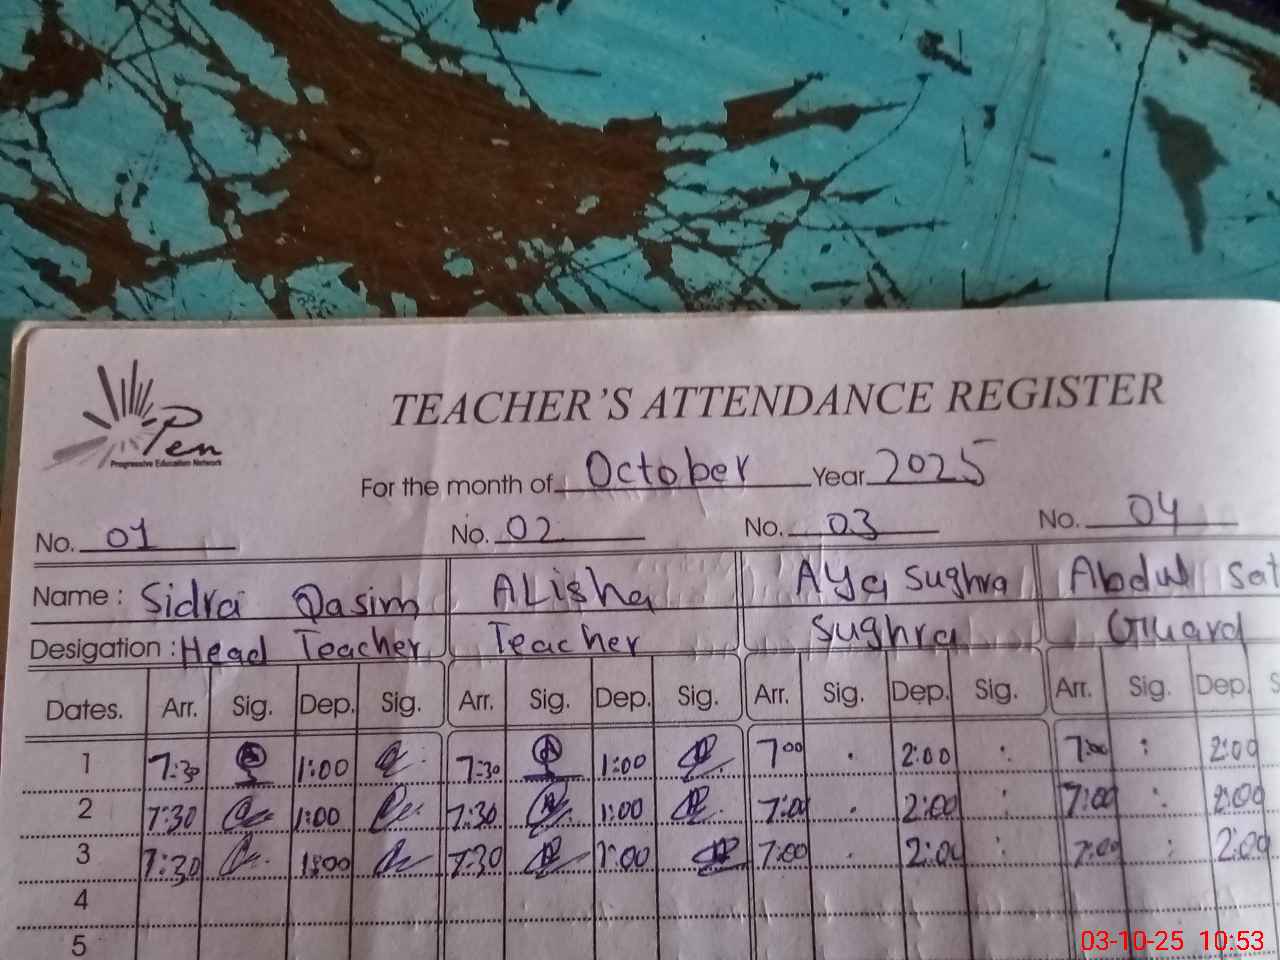 Pen
Progressive Education Network
TEACHER'S ATTENDANCE REGISTER
For the month of October Year 2025
No. 01 No. 02 No. 03 No. 04
Name: Sidra Qasim ALisha AYa Sughra Abdul Sat
Desigation: Head Teacher Teacher Sughra Guard
Dates. Arr. Sig. Dep. Sig. Arr. Sig. Dep. Sig. Arr. Sig. Dep. Sig. Arr. Sig. Dep. S
1 7:30 1:00 7:30 1:00 7:00 2:00 7:00 2:00
2 7:30 1:00 7:30 1:00 7:00 2:00 7:00 2:00
3 7:30 1:00 7:30 1:00 7:00 2:00 7:00 2:00
4
5
03-10-25 10:53